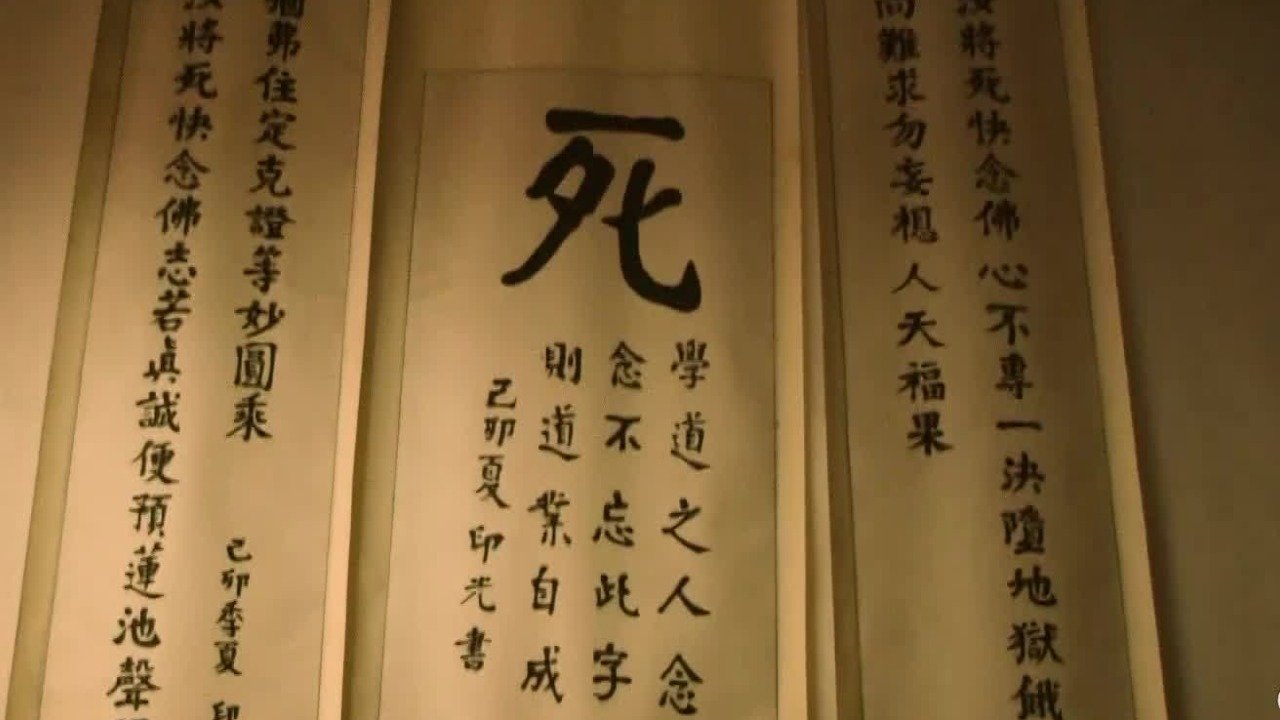 汝將死快念佛心不專一決墮地獄餓
尚難求勿妄想人天福果
死
學道之人念
念不忘此字
則道業自成
己卯夏印光書
汝將死快念佛志若真誠便預蓮池聲
彌弗住定克證等妙圓乘
己卯季夏印